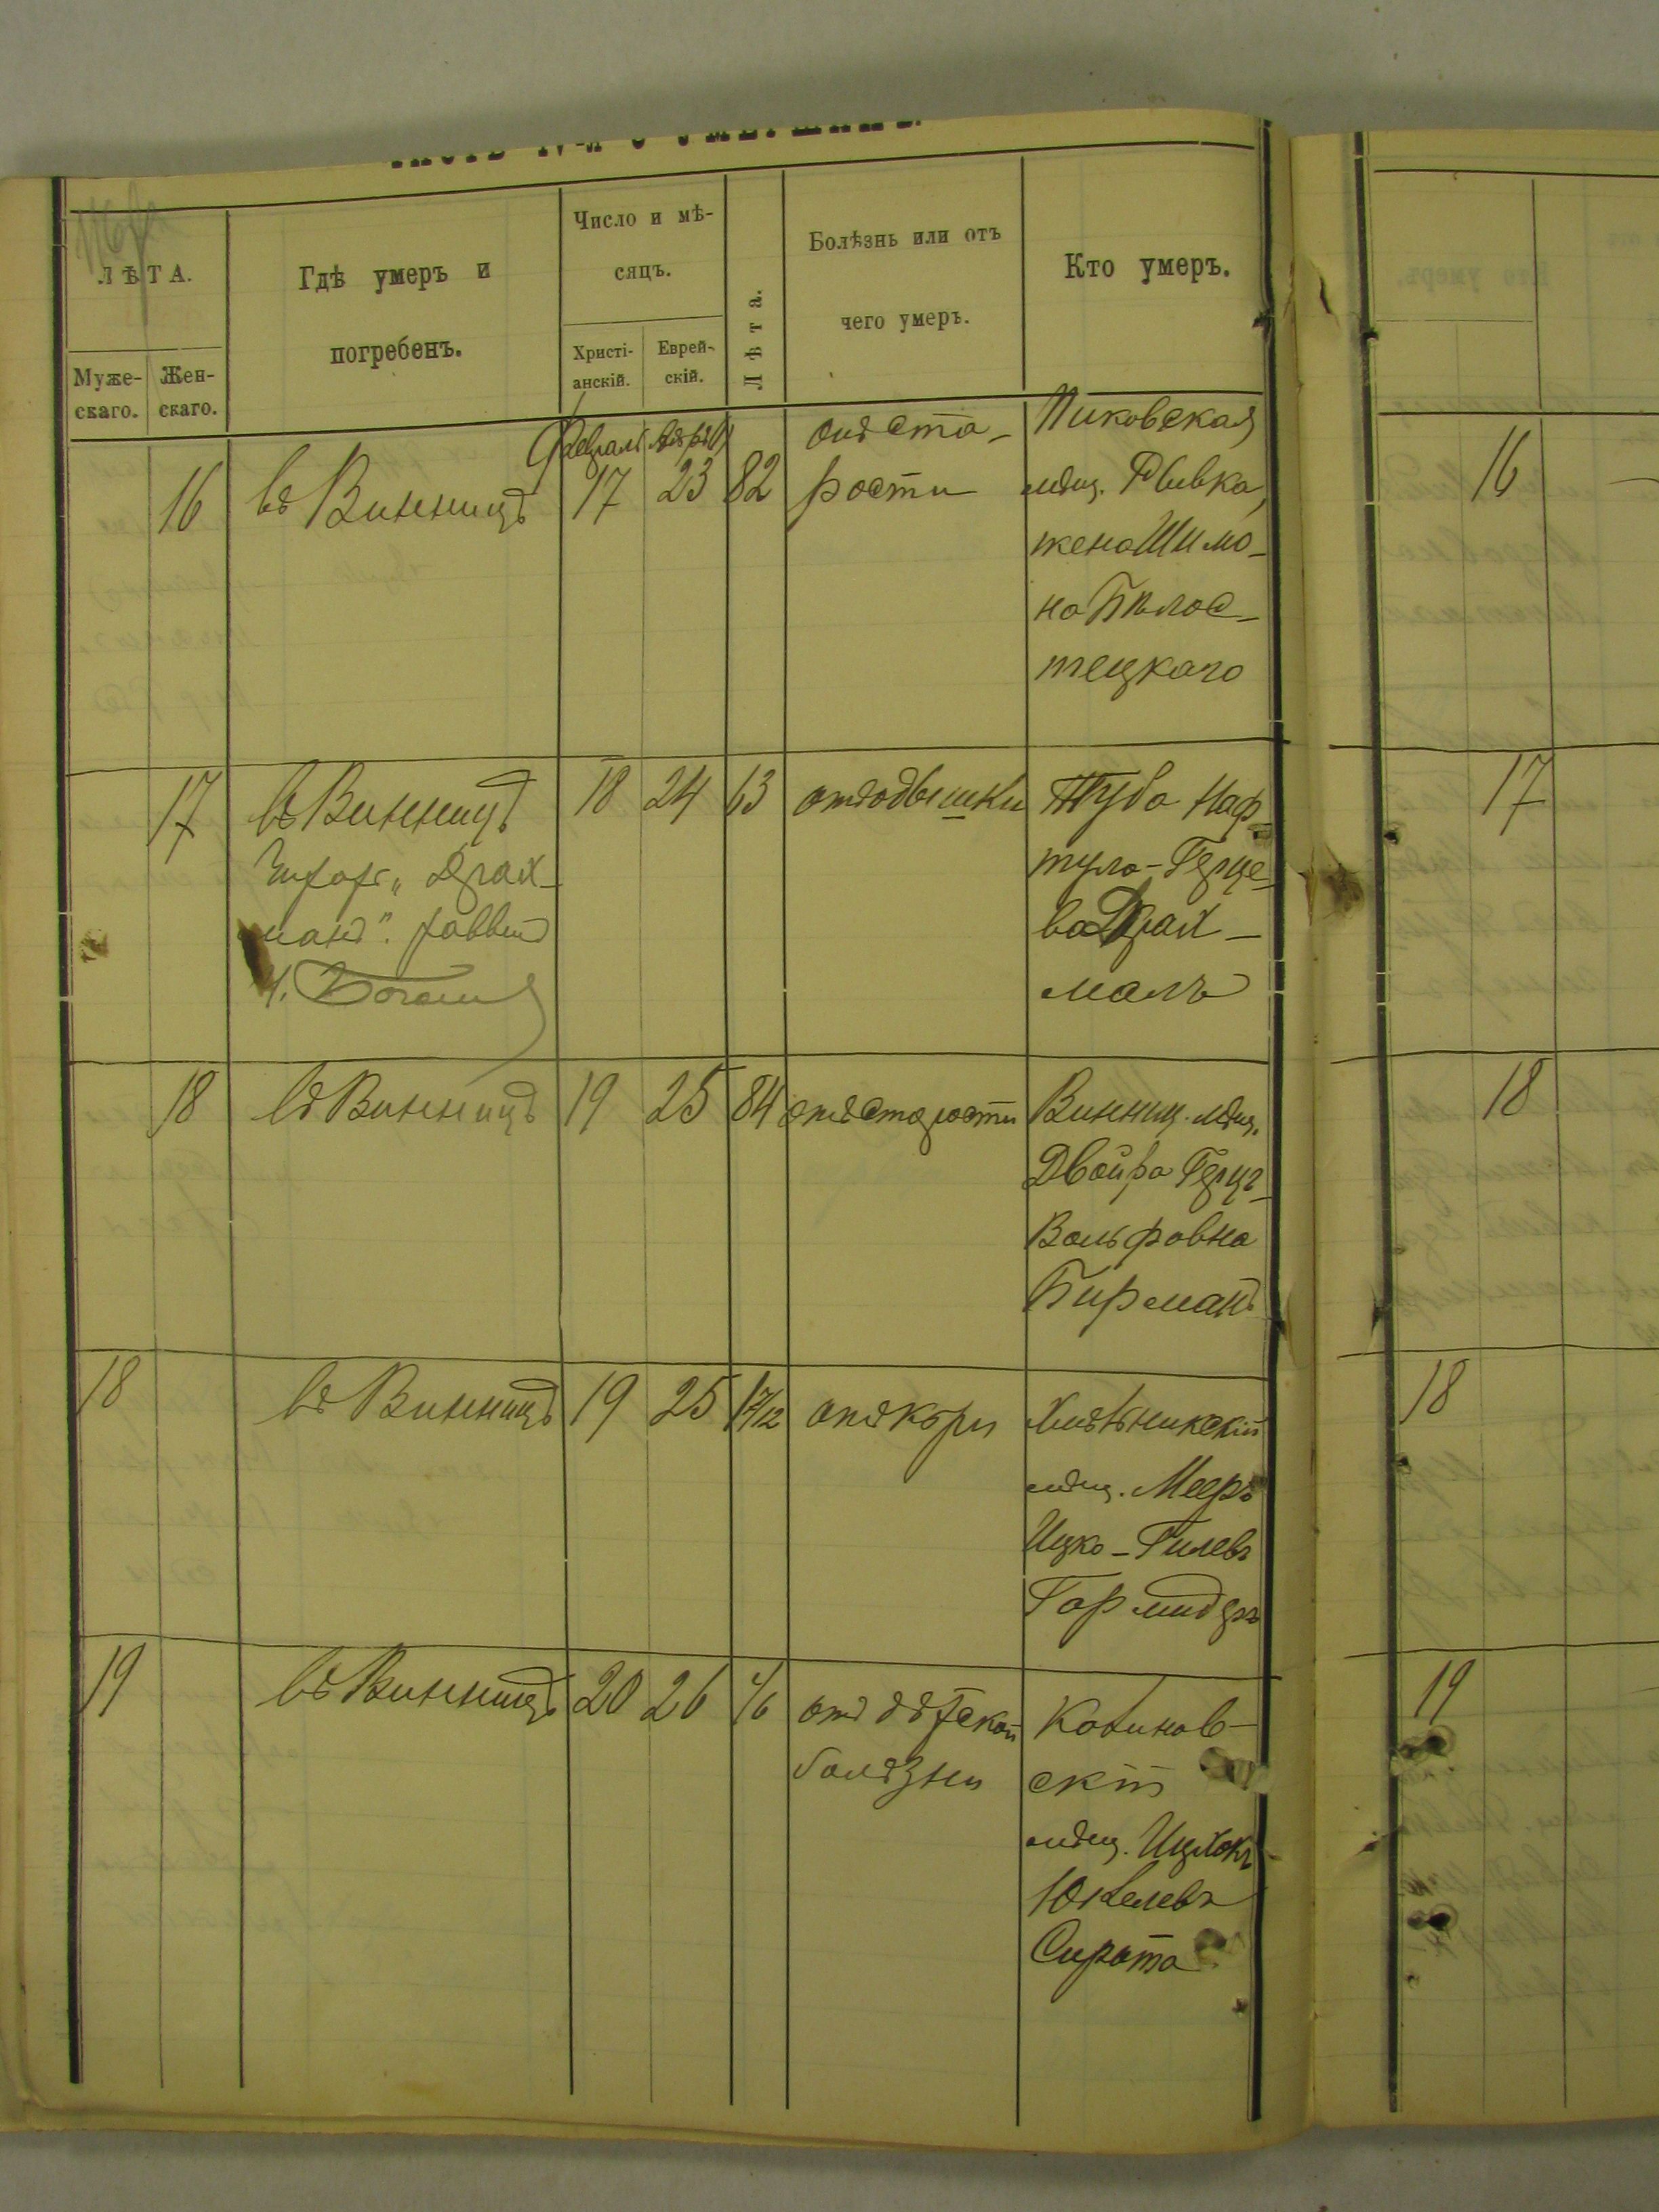 ЛѢТА.
Муже-
скаго.
Жен-
скаго.
Гдѣ умеръ и
погребенъ.
Число и мѣ-
сяцъ.
Христі-
анскій.
Еврей-
скій.
Лѣта.
Болѣзнь или отъ
чего умеръ.
Кто умеръ.
16
въ Винницѣ
Февраль
17
23
82
отъ ста-
рости
Пиковская
мѣщ. Ривка,
жена Шимо-
на Бѣлос-
тецкаго
17
въ Винницѣ
"Драх-
манъ". раввинъ
18
24
63
отъ одышки
Туба Наф-
тула-Герце-
ва Драх-
манъ
18
въ Винницѣ
19
25
84
отъ старости
Винниц. мѣщ.
Двойра Герцъ-
Вольфовна
Бирманъ
18
въ Винницѣ
19
25
отъ кори
Хмѣльникскій
мѣщ. Мееръ
Ицко-Гилевъ
19
въ Винницѣ
20
26
отъ дѣтской
болѣзни
скій
мѣщ. Ицхокъ
Сирота
16
17
18
18
19